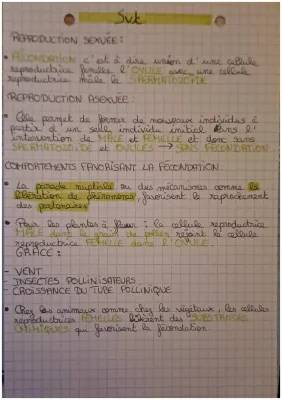 Svt
REPRODUCTION SEXUÉE :
• FÉCONDATION c'est à dire union d'une cellule
reproductrice femelle l'OVULE avec une cellule
reproductrice mâle le SPERMATOZOÏDE
REPRODUCTION ASEXUÉE :
• Elle permet de former de nouveaux individus à
partir d'un seul individu initial sans l'
intervention de MÂLE et FEMELLE et donc sans
SPERMATOZOÏDE et OVULES → SANS FÉCONDATION
COMPORTEMENTS FAVORISANT LA FÉCONDATION :
• La parade nuptiale ou des mécanismes comme la
libération de phéromones, favorisent le rapprochement
des partenaires
• Pour les plantes à fleurs : la cellule reproductrice
MÂLE dont le grain de pollen rejoint la cellule
reproductrice FEMELLE dans l'OVULE
GRÂCE :
- VENT
- INSECTES POLLINISATEURS
- CROISSANCE DU TUBE POLLINIQUE
• Chez les animaux comme chez les végétaux, les cellules
reproductrices FEMELLES libèrent des SUBSTANCES
CHIMIQUES qui favorisent la fécondation